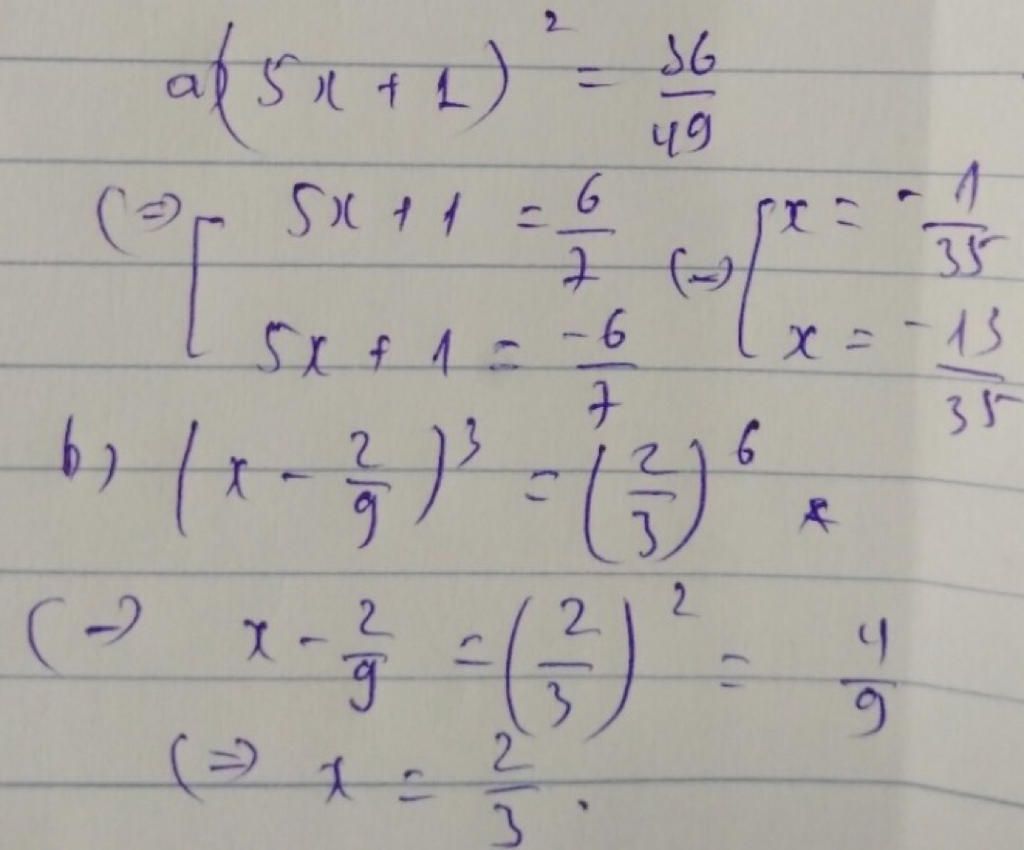 a) (5x + 1)² = 36/49
(=) [ 5x + 1 = 6/7 (=) [ x = -1/35
5x + 1 = -6/7 x = -13/35
b) (x - 2/9)³ = (2/3)⁶
(=) x - 2/9 = (2/3)² = 4/9
(=) x = 2/3.